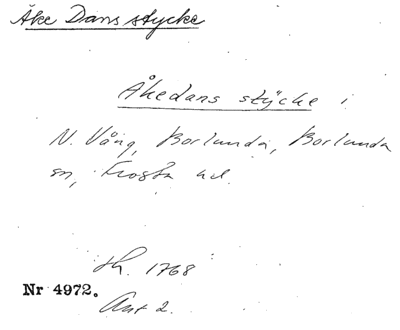 Åke Dans stycke
Åkedans stycke i
N. Vång, Borlunda, Borlunda
sn, Frosta hd.
sk. 1768
Nr 4972.
Akt 2.